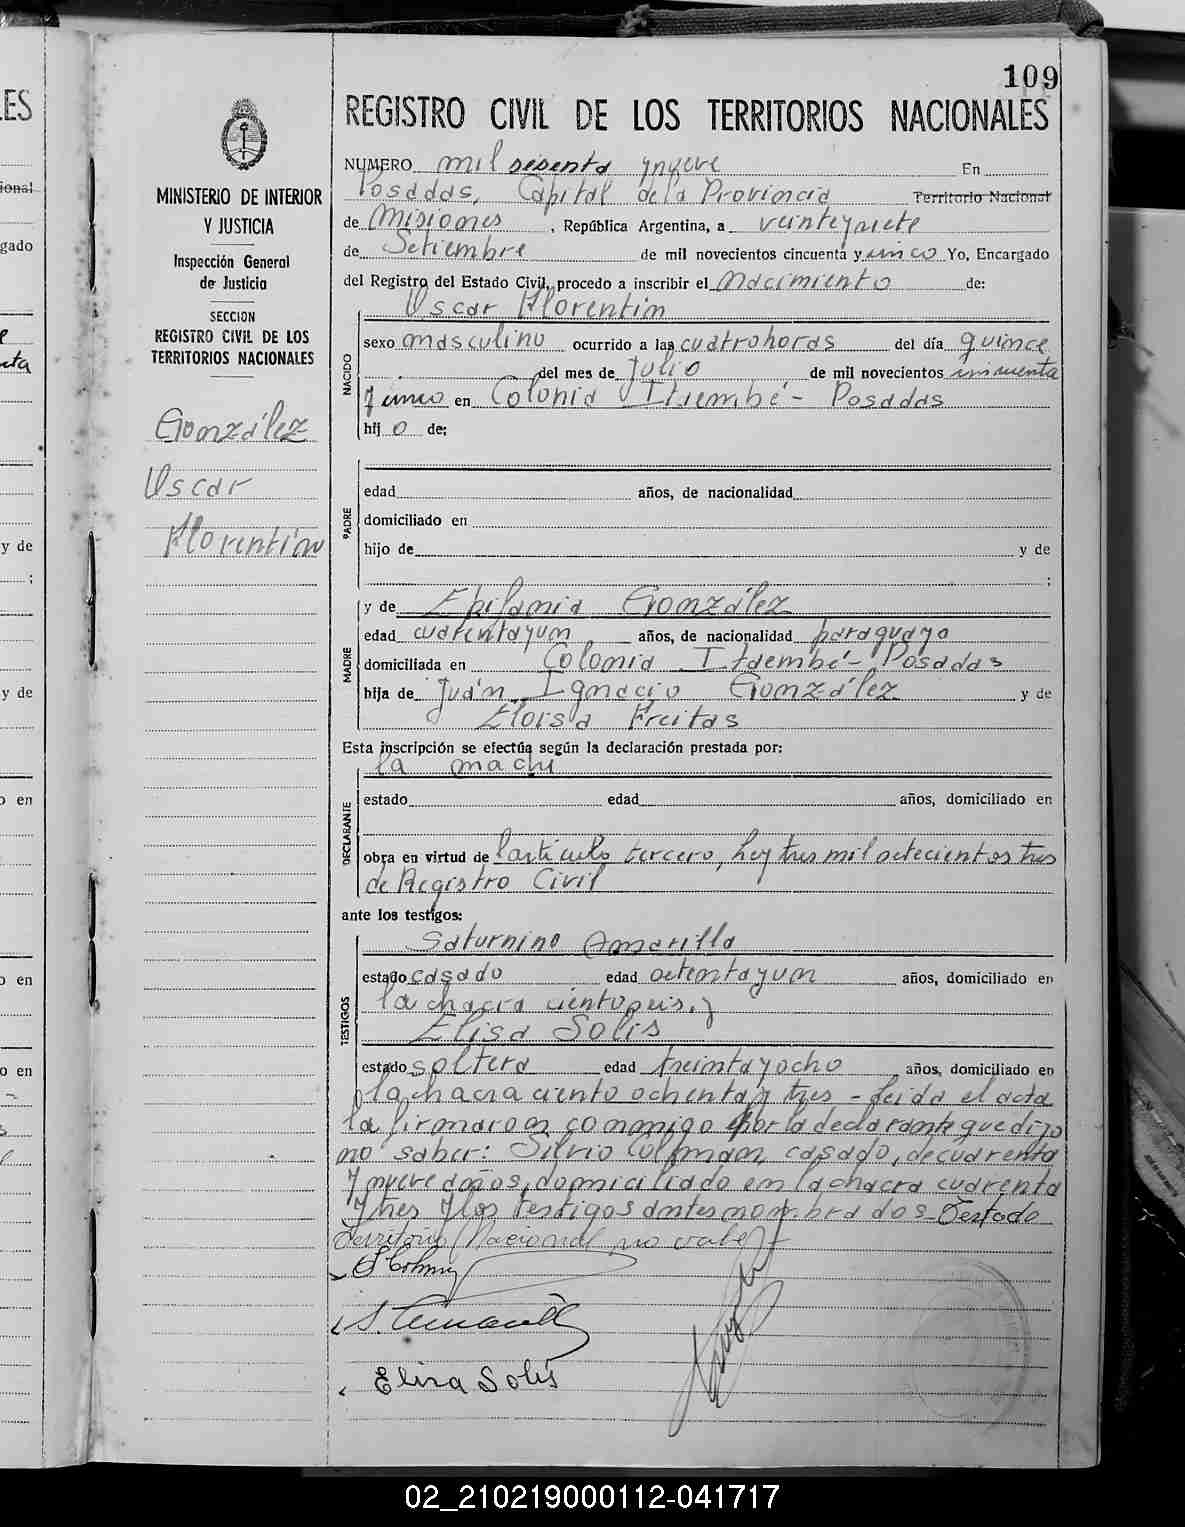 109
LES
REGISTRO CIVIL DE LOS TERRITORIOS NACIONALES
MINISTERIO DE INTERIOR
Y JUSTICIA
Inspección General
de Justicia
SECCION
REGISTRO CIVIL DE LOS
TERRITORIOS NACIONALES
González
Oscar
Florentín
NUMERO mil sesenta y nueve En
Posadas, Capital de la Provincia Territorio Nacional
de Misiones, República Argentina, a veintey siete
de Setiembre de mil novecientos cincuenta y unico Yo, Encargado
del Registro del Estado Civil, procedo a inscribir el Nacimiento de:
Oscar Florentin
NACIDO
sexo masculino ocurrido a las cuatro horas del día quince
del mes de Julio de mil novecientos cincuenta
y cinco en Colonia Itaembé - Posadas
hij o de:
PADRE
edad años, de nacionalidad
domiciliado en
hijo de y de
;
MADRE
y de Epifania González
edad cuarentayun años, de nacionalidad paraguaya
domiciliada en Colonia Itaembé - Posadas
hija de Juán Ignacio González y de
Eloisa Freitas
Esta inscripción se efectúa según la declaración prestada por:
la madre
DECLARANTE
estado edad años, domiciliado en
obra en virtud de l'artículo tercero, ley tres mil setecientos tres
de Registro Civil
ante los testigos:
TESTIGOS
Saturnino Amarilla
estado casado edad setentayun años, domiciliado en
la chacra ciento seis, y
Elisa Solis
estado soltera edad treintayocho años, domiciliado en
la chacra ciento ochenta y tres - Leida el acta
la firmaron conmigo por la declarante que dijo
no saber: Silvio Colman, casado, de cuarenta
y nueve años, domiciliado en la chacra cuarenta
y tres y los testigos antes nombrados - Testado
Territorio Nacional no vale
S. Colman
S. Amarilla
Elisa Solis
02_210219000112-041717